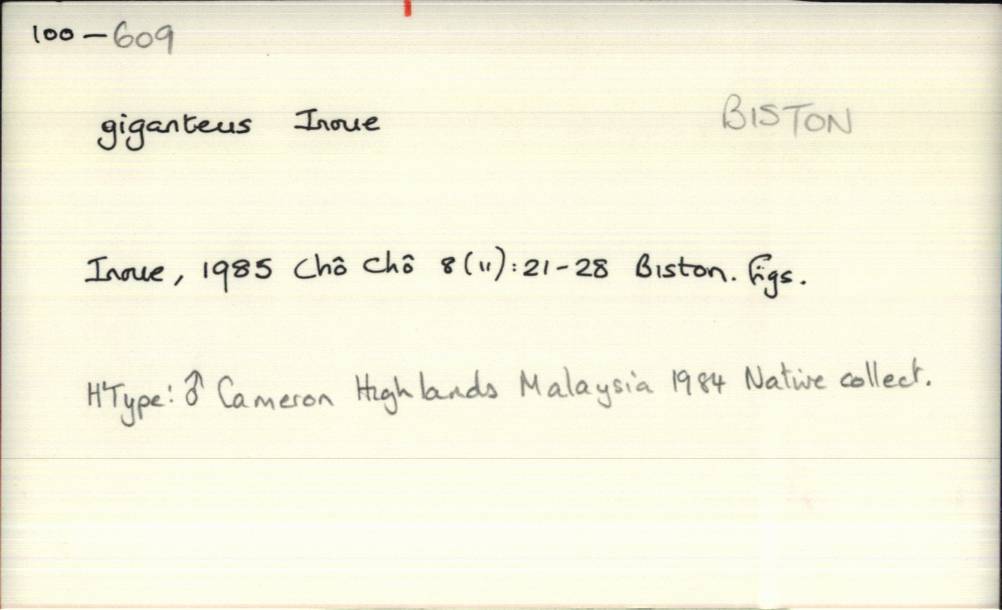 100-609
giganteus Inoue BISTON
Inoue, 1985 Chô Chô 8(11):21-28 Biston. Figs.
H'Type: ♂ Cameron Highlands Malaysia 1984 Native collect.